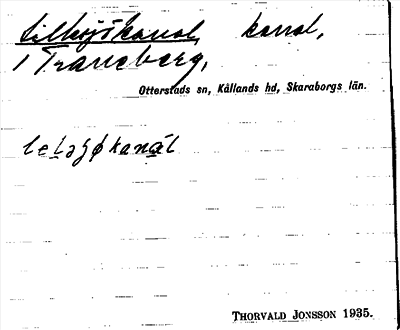 Lillsjökanal, kanal,
i Traneberg,
Otterstads sn, Kållands hd, Skaraborgs län.
THORVALD JONSSON 1935.